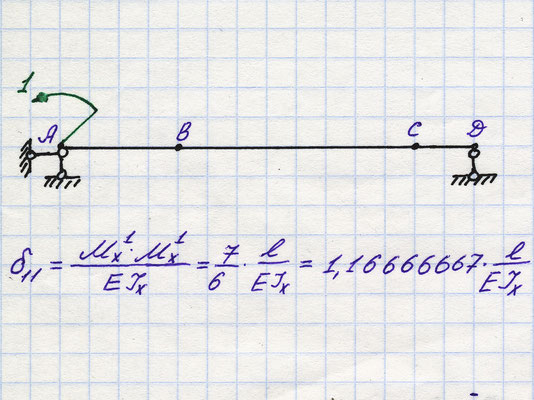 1
A B C D
δ₁₁ = Mₓ¹·Mₓ¹ / EJₓ = 7/6 · l/EJₓ = 1,16666667 · l/EJₓ